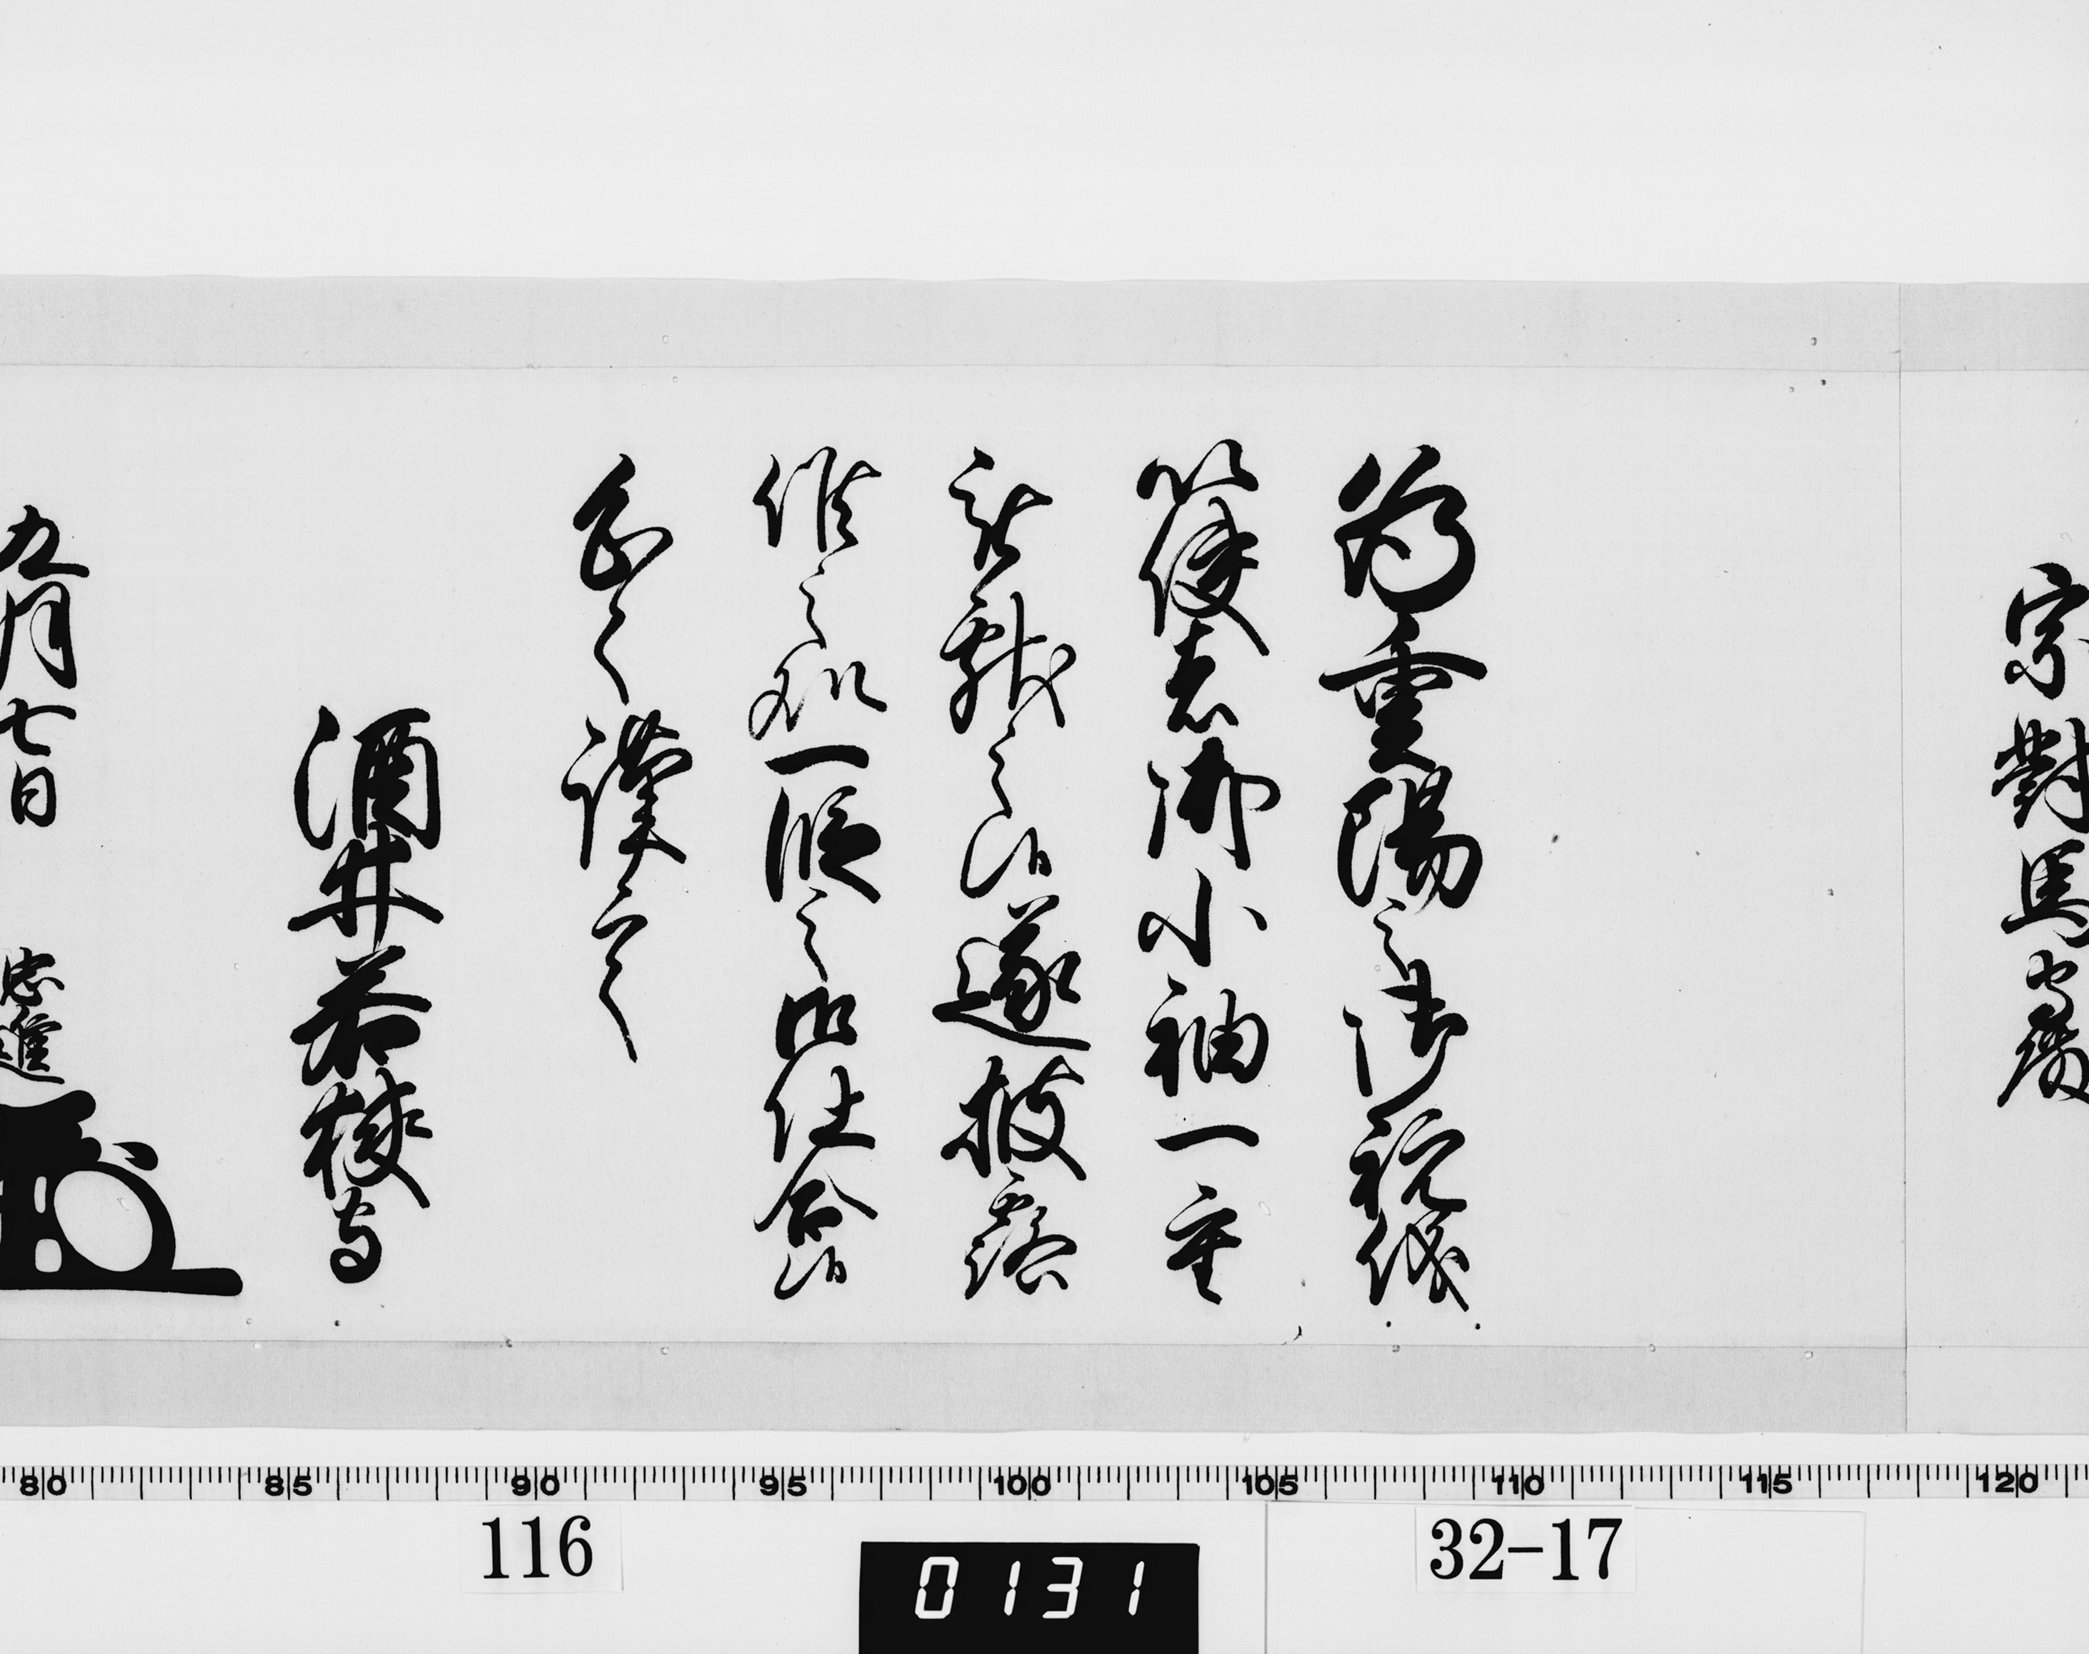 宗對馬守殿
為重陽之御祝儀
以使者御小袖一重
被献之候遂披露
候之処一段之御仕合候
恐々謹言
酒井若狭守
九月七日 忠進
80 85 90 95 100 105 110 115 120
116
0131
32-17